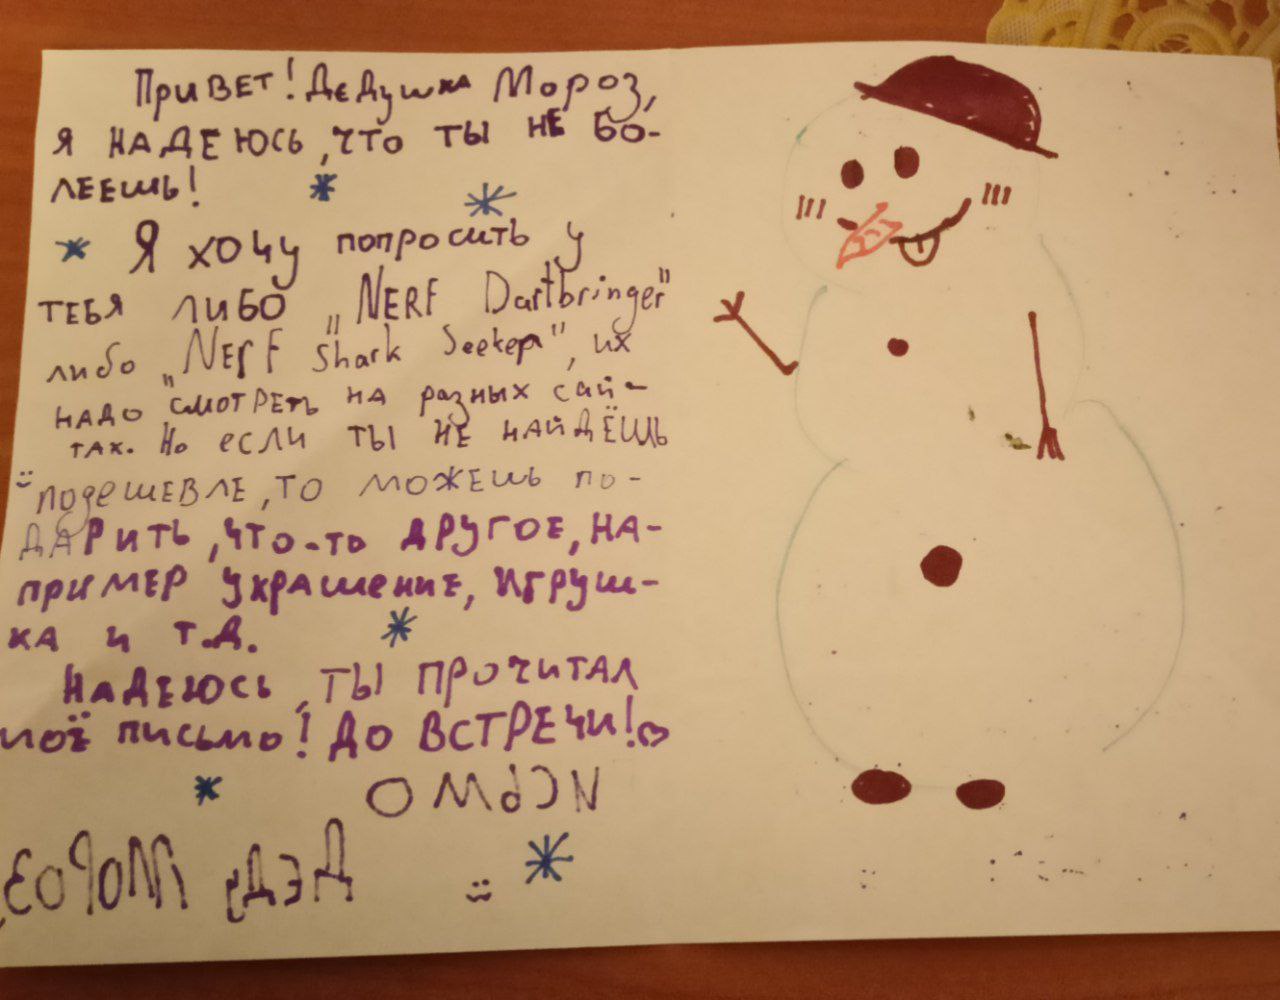 Привет! Дедушка Мороз,
я надеюсь, что ты не бо-
леешь!
Я хочу попросить у
тебя либо „NERF Dartbringer"
либо „NERF Shark Seeker", их
надо смотреть на разных сай-
тах. Но если ты не найдёшь
подешевле, то можешь по-
дарить, что-то другое, на-
пример украшение, игруш-
ка и т.д.
Надеюсь, ты прочитал
моё письмо! До встречи!